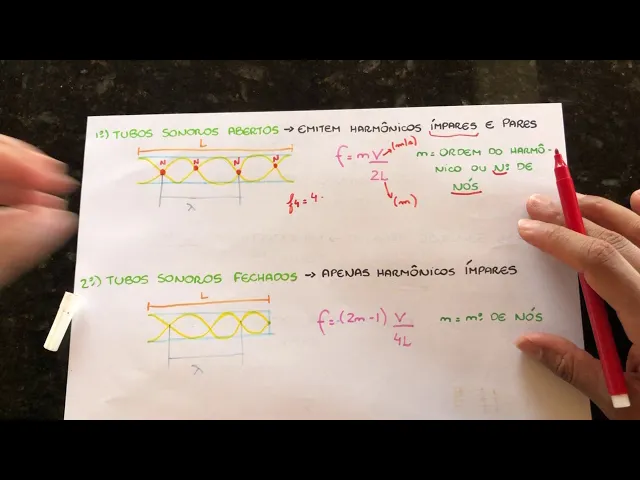 1º) TUBOS SONOROS ABERTOS → EMITEM HARMÔNICOS ÍMPARES E PARES
L
N N N N
λ
f = m V/2L
(m/s)
(m)
m = ORDEM DO HARMÔ-
NICO OU Nº DE
NÓS
f4 = 4 ·
2º) TUBOS SONOROS FECHADOS → APENAS HARMÔNICOS ÍMPARES
L
λ
f = (2m-1) V/4L
m = mº DE NÓS